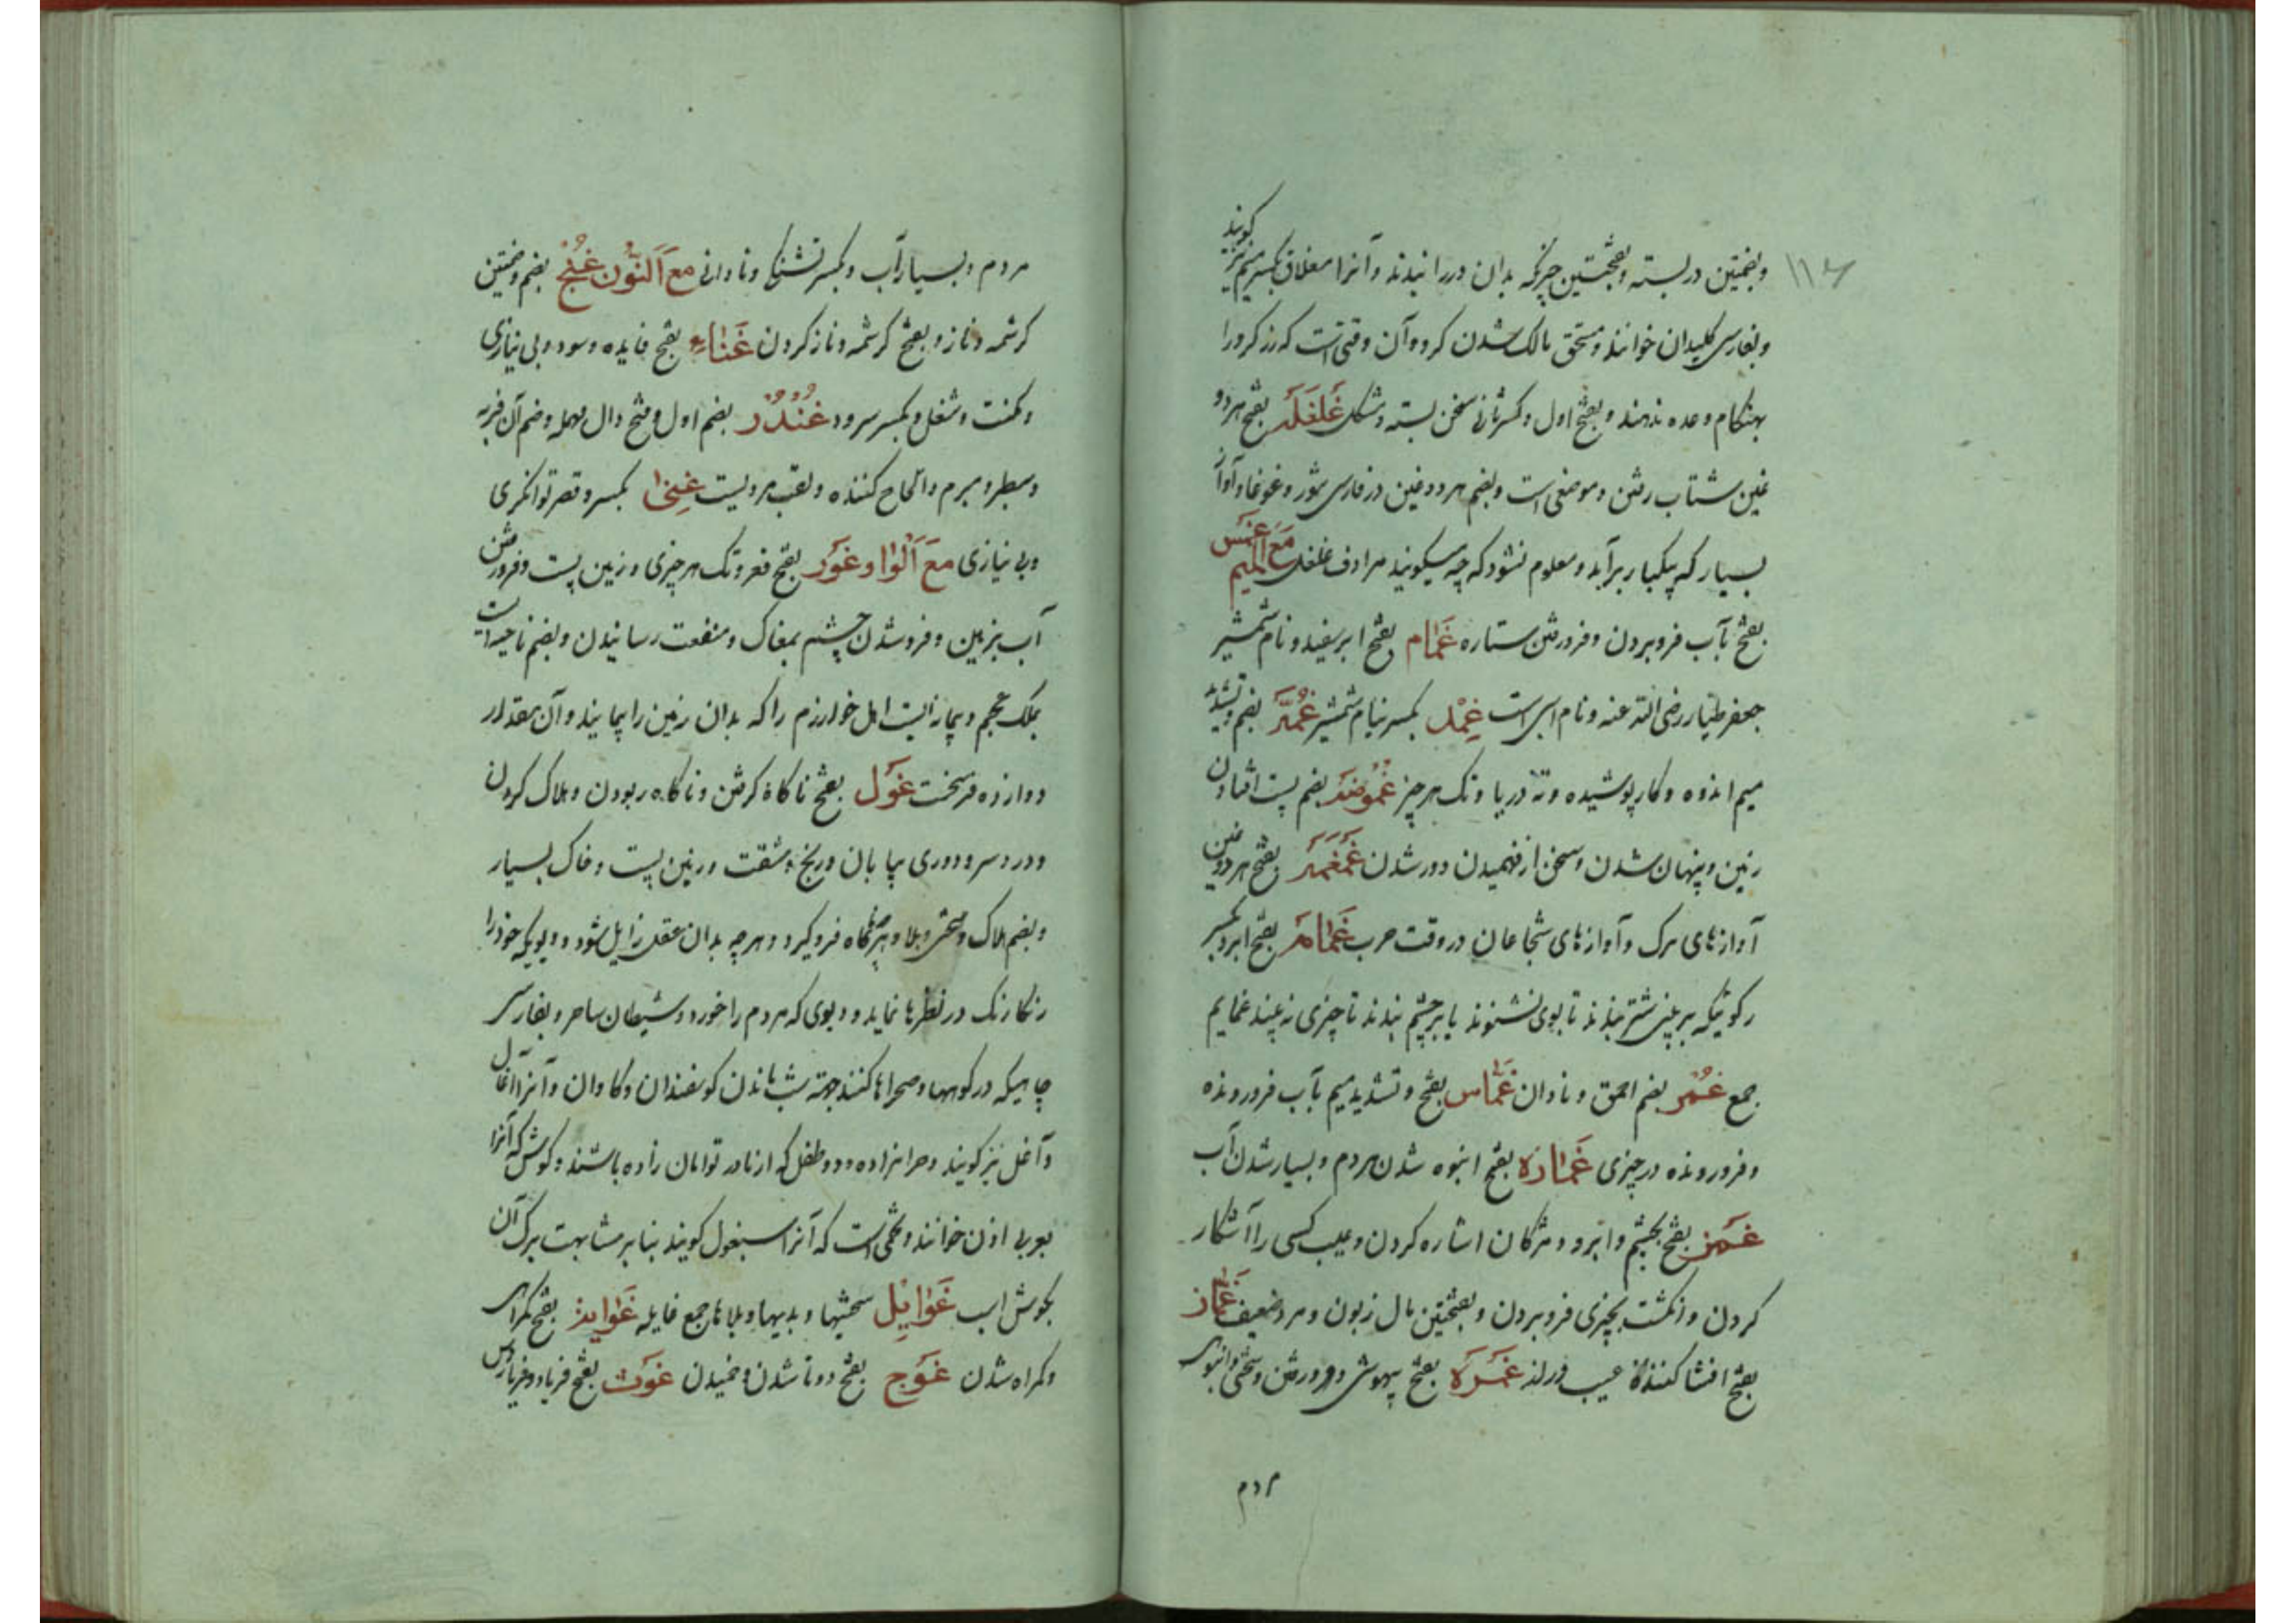 ۱۱۶
وبضمتین در بسته وبفتحتین چیزیکه بدان در را ببندند وآنرا مغلاق بکسر میم نیز گویند
وبفارسی کلیدان خوانند ومستحق مالک شدن کرو وآن وقتی است که رز کرو را
بهنکام وعده ندهند وبفتح اول وکسر ثانی سخن بسته ومشکل غَلغَلَه بفتح هردو
غین شتاب رفتن وموضعی است وبضم هردو غین در فارسی شور وغوغا وآواز
بسیار که بیکبار برآید ومعلوم نشود که چه میکویند مرادف غلغل مَعَ المیم غَمس
بفتح بآب فروبردن وفرورفتن ستاره غَمام بفتح ابر سفید ونام شمشیر
جعفر طیار رضی الله عنه ونام اسبی است غِمْد بکسر نیام شمشیر غُمَّه بضم وتشدید
میم اندوه وکار پوشیده وته دریا وتک هر چیز غُمُوضَه بضم پست افتادن
زمین وپنهان شدن وسخن از فهمیدن دور شدن غَمغَمَه بفتح هردو غین
آوازهای کرک وآوازهای شجاعان در وقت حرب غَمامَه بفتح ابر وبکسر
رکوئیکه بر بینی شتر بندند تا بوی نشنود یا بر چشم بندند تا چیزی نه بیند غمایم
جمع غُمر بضم احمق ونادان غَمَّاس بفتح وتشدید میم بآب فرورونده
وفرورونده در چیزی غَمارَه بفتح انبوه شدن مردم وبسیار شدن آب
غَمز بفتح بچشم وابرو ومژکان اشاره کردن وعیب کسی را آشکار
کردن وانکشت بچیزی فروبردن وبفتحتین مال زبون ومرد ضعیف غَمّاز
بفتح افشا کنندهٔ عیب وراز غَمرَه بفتح بیهوشی وفرورفتن وسختی وانبوهی
مردم
مردم وبسیار آب وبکسر تشنکی ونادانی مع اَلنُّون غُنج بضم وضمتین
کرشمه وناز وبفتح کرشمه وناز کردن غَناء بفتح فایده وسود وبی نیازی
ومکنت وشغل وبکسر سرود غُنْدُر بضم اول وفتح دال مهمله وضم آن فربه
وسطبر ومبرم والحاح کننده ولقب مردیست غِنیٰ بکسر وقصر توانکری
وبی نیازی مَعَ اَلْواو غَور بفتح قعر وتک هر چیزی وزمین پست وفرورفتن
آب بزمین وفروشدن چشم بمغاک ومنفعت رسانیدن وبضم ناحیه است
بملک عجم وپیمانه ایست اهل خوارزم را که بدان زمین را پیمایند وآن مقدار
دوازده فرسخست غَول بفتح ناکاه کرفتن وناکاه ربودن وهلاک کردن
ودرد سر ودوری بیابان ورنج ومشقت وزمین پست وخاک بسیار
وبضم هلاک وسختی وبلا وهرچه ناکاه فروکیرد وهرچه بدان عقل زایل شود ودیویکه خود را
رنکارنک در نظرها نماید ودیوی که مردم را خورد وشیطان ساحر وبفارسی
جاهیکه در کوهها وصحراها کنند جهته شب ماندن کوسفندان وکاوان وآنرا آغال
وآغل نیز کویند وحرامزاده ودو طفل که از مادر توامان زاده باشند وکوش که آنرا
بعربی اذن خوانند وتخمی است که آنرا اسبغول کویند بنابر مشابهت برک آن
بکوش اسب غَوایِل سختیها وبدیها وبلاها جمع غایله غَوایه بفتح کمراهی
وکمراه شدن غَوَج بفتح دوتا شدن وخمیدن غَوث بفتح فریاد وفریادرس